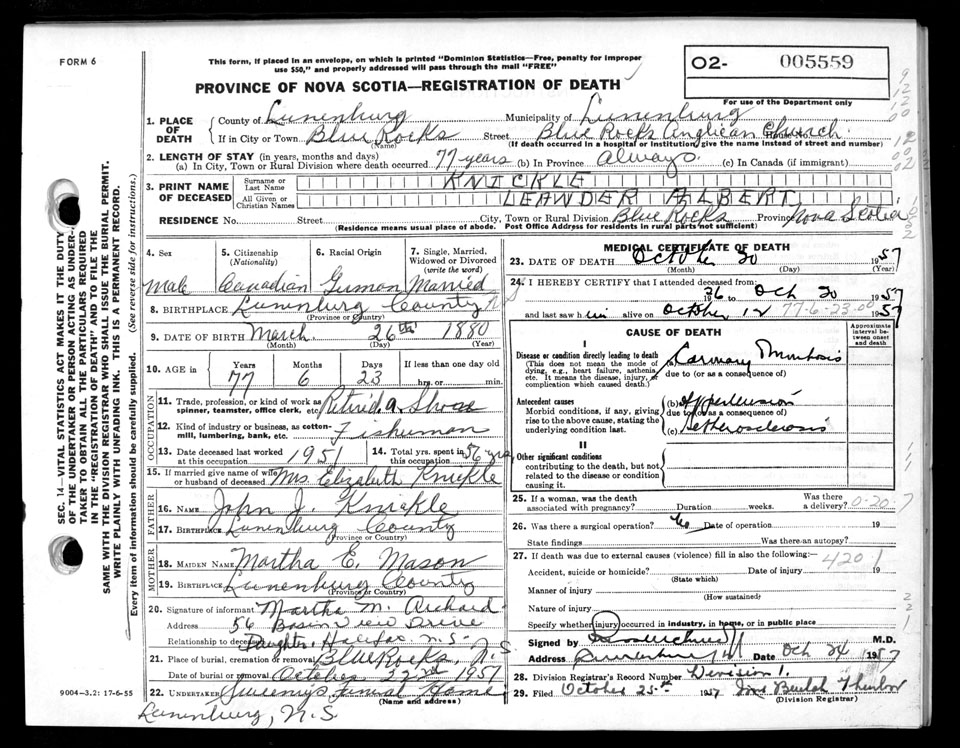 FORM 6
This form, if placed in an envelope, on which is printed "Dominion Statistics—Free, penalty for improper
use $50," and properly addressed will pass through the mail "FREE"
O2- 005559
PROVINCE OF NOVA SCOTIA—REGISTRATION OF DEATH
For use of the Department only
1. PLACE OF DEATH
County of Lunenburg Municipality of Lunenburg
If in City or Town Blue Rocks Street Blue Rocks Anglican Church
(Name) (If death occurred in a hospital or institution, give the name instead of street and number)
2. LENGTH OF STAY (in years, months and days)
(a) In City, Town or Rural Division where death occurred 77 years (b) In Province always (c) In Canada (if immigrant)
3. PRINT NAME OF DECEASED
Surname or Last Name KNICKLE
All Given or Christian Names LEANDER ALBERT
RESIDENCE No. Street City, Town or Rural Division Blue Rocks Province Nova Scotia
(Residence means usual place of abode. Post Office Address for residents in rural parts not sufficient)
4. Sex 5. Citizenship (Nationality) 6. Racial Origin 7. Single, Married, Widowed or Divorced (write the word)
Male Canadian German Married
8. BIRTHPLACE Lunenburg County N S
(Province or Country)
9. DATE OF BIRTH March 26th 1880
(Month) (Day) (Year)
10. AGE in Years Months Days If less than one day
77 6 23 hrs. or min.
OCCUPATION
11. Trade, profession, or kind of work as spinner, teamster, office clerk, etc.
12. Kind of industry or business, as cotton-mill, lumbering, bank, etc. Fisherman
13. Date deceased last worked at this occupation 1951
14. Total yrs. spent in this occupation 56 yrs
15. If married give name of wife or husband of deceased Mrs. Elizabeth Knickle
FATHER
16. NAME John J. Knickle
17. BIRTHPLACE Lunenburg County
(Province or Country)
MOTHER
18. MAIDEN NAME Martha E. Mason
19. BIRTHPLACE Lunenburg County
(Province or Country)
20. Signature of informant Martha M. Richard
Address 56 Basin View Drive
Relationship to deceased Daughter, Halifax N.S.
21. Place of burial, cremation or removal Blue Rocks, N.S.
Date of burial or removal October 22nd 1957
22. UNDERTAKER Sweeny's Funeral Home
(Name and address)
Lunenburg, N.S.
9004-3.2: 17-6-55
MEDICAL CERTIFICATE OF DEATH
23. DATE OF DEATH October 20 1957
(Month) (Day) (Year)
24. I HEREBY CERTIFY that I attended deceased from:
to Oct 20 1957
and last saw him alive on October 12 1957
77-6-23-00
CAUSE OF DEATH
Approximate interval between onset and death
I
Disease or condition directly leading to death
(This does not mean the mode of dying, e.g., heart failure, asthenia, etc. It means the disease, injury, or complication which caused death.)
(a) Coronary Thrombosis
due to (or as a consequence of)
Antecedent causes
Morbid conditions, if any, giving rise to the above cause, stating the underlying condition last.
(b) Hypertension
due to (or as a consequence of)
(c) Artherosclerosis
II
Other significant conditions
contributing to the death, but not related to the disease or condition causing it.
25. If a woman, was the death associated with pregnancy? Duration weeks. Was there a delivery?
0-20-7
26. Was there a surgical operation? No Date of operation 19
State findings Was there an autopsy?
27. If death was due to external causes (violence) fill in also the following:—
420.1
Accident, suicide or homicide? Date of injury 19
(State which)
Manner of injury
(How sustained)
Nature of injury
Specify whether injury occurred in industry, in home, or in public place
Signed by M.D.
Address Date Oct 24 1957
28. Division Registrar's Record Number Division 1.
29. Filed October 25th 1957 Mrs Beulah
(Division Registrar)
SEC. 14—VITAL STATISTICS ACT MAKES IT THE DUTY
OF THE UNDERTAKER OR PERSON ACTING AS UNDER-
TAKER TO OBTAIN ALL THE PARTICULARS REQUIRED
IN THE "REGISTRATION OF DEATH" AND TO FILE THE
SAME WITH THE DIVISION REGISTRAR WHO SHALL ISSUE THE BURIAL PERMIT.
WRITE PLAINLY WITH UNFADING INK. THIS IS A PERMANENT RECORD.
Every item of information should be carefully supplied. (See reverse side for instructions.)